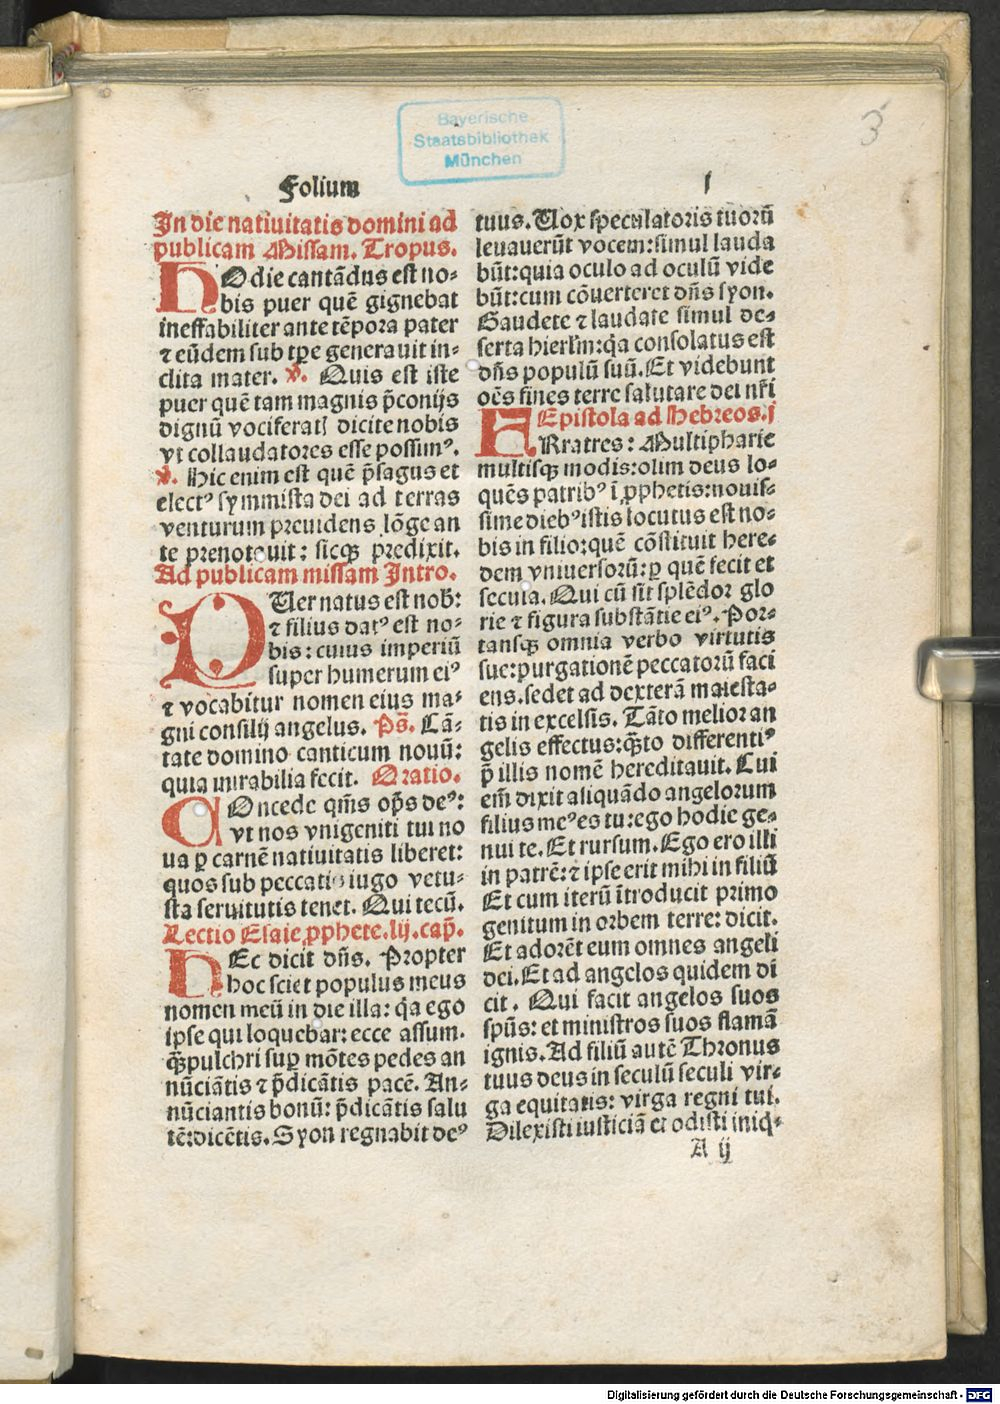 Bayerische
Staatsbibliothek
München
3
Folium
I
In die natiuitatis domini ad
publicam Missam. Tropus.
HOdie cantādus est no-
bis puer quē gignebat
ineffabiliter ante tēpora pater
⁊ eūdem sub tꝑe generauit in-
clita mater. ℣. Quis est iste
puer quē tam magnis p̄conijs
dignū vociferatꝭ dicite nobis
vt collaudatores esse possimꝰ.
℣. Hic enim est quē p̄sagus et
electꝰ symmista dei ad terras
venturum preuidens lōge an
te prenotauit: sicqꝫ predixit.
Ad publicam missam Intro.
PUer natus est nob̄:
⁊ filius datꝰ est no-
bis: cuius imperiū
super humerum eiꝰ
⁊ vocabitur nomen eius ma-
gni consilij angelus. Ps̄. Cā-
tate domino canticum nouū:
quia mirabilia fecit. Oratio.
COncede qm̄s op̄s deꝰ:
vt nos vnigeniti tui no
ua ꝑ carnē natiuitatis liberet:
quos sub peccati iugo vetu-
sta seruitutis tenet. Qui tecū.
Lectio Esaie ꝓphete. lij. cap̄.
HEc dicit dn̄s. Propter
hoc sciet populus meus
nomen meū in die illa: q̄a ego
ipse qui loquebar: ecce assum.
qꝫ̄ pulchri suꝑ mōtes pedes an
nūciātis ⁊ p̄dicātis pacē. An-
nūciantis bonū: p̄dicātis salu
tē: dicētis. Syon regnabit deꝰ
tuus. Uox speculatoris tuorū
leuauerūt vocem: simul lauda
būt: quia oculo ad oculū vide
būt: cum cōuerteret dn̄s syon.
Gaudete ⁊ laudate simul de-
serta hierlm̄: q̄a consolatus est
dn̄s populū suū. Et videbunt
oēs fines terre salutare dei nr̄i
Epistola ad Hebreos. j
FRratres: Multipharie
multisqꝫ modis: olim deus lo-
quēs patribꝰ ī ꝓphetis: nouis-
sime diebꝰ istis locutus est no-
bis in filio: quē cōstituit here-
dem vniuersorū: ꝑ quē fecit et
secula. Qui cū sit splēdor glo
rie ⁊ figura substātie eiꝰ. Por-
tansqꝫ omnia verbo virtutis
sue: purgationē peccatorū faci
ens. sedet ad dexterā maiesta-
tis in excelsis. Tāto melior an
gelis effectus: qꝫ̄to differentiꝰ
p̄ illis nomē hereditauit. Cui
em̄ dixit aliquādo angelorum
filius meꝰ es tu: ego hodie ge-
nui te. Et rursum. Ego ero illi
in patrē: ⁊ ipse erit mihi in filiū
Et cum iterū ītroducit primo
genitum in orbem terre: dicit.
Et adorēt eum omnes angeli
dei. Et ad angelos quidem di
cit. Qui facit angelos suos
spūs: et ministros suos flamā
ignis. Ad filiū autē Thronus
tuus deus in seculū seculi vir-
ga equitatis: virga regni tui.
Dilexisti iusticiā et odisti iniq-
A ij
Digitalisierung gefördert durch die Deutsche Forschungsgemeinschaft - DFG